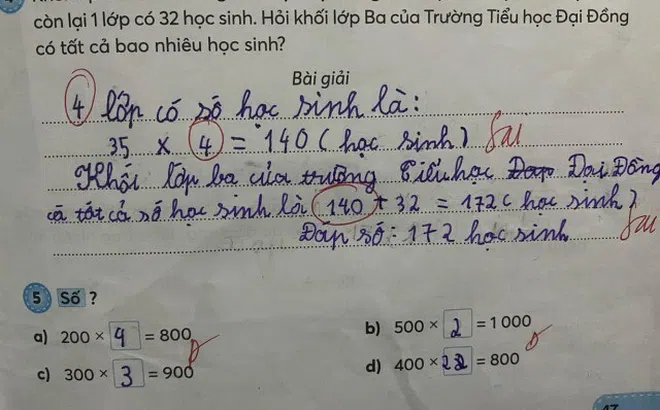 còn lại 1 lớp có 32 học sinh. Hỏi khối lớp Ba của Trường Tiểu học Đại Đồng
có tất cả bao nhiêu học sinh?
Bài giải
4 lớp có số học sinh là:
35 x 4 = 140 ( học sinh ) Sai
Khối lớp ba của trường Tiểu học Đại Đồng
có tất cả số học sinh là 140 + 32 = 172 ( học sinh )
Đáp số: 172 học sinh Sai
5 Số ?
a) 200 × 4 = 800
b) 500 × 2 = 1 000
c) 300 × 3 = 900
d) 400 × 2 = 800